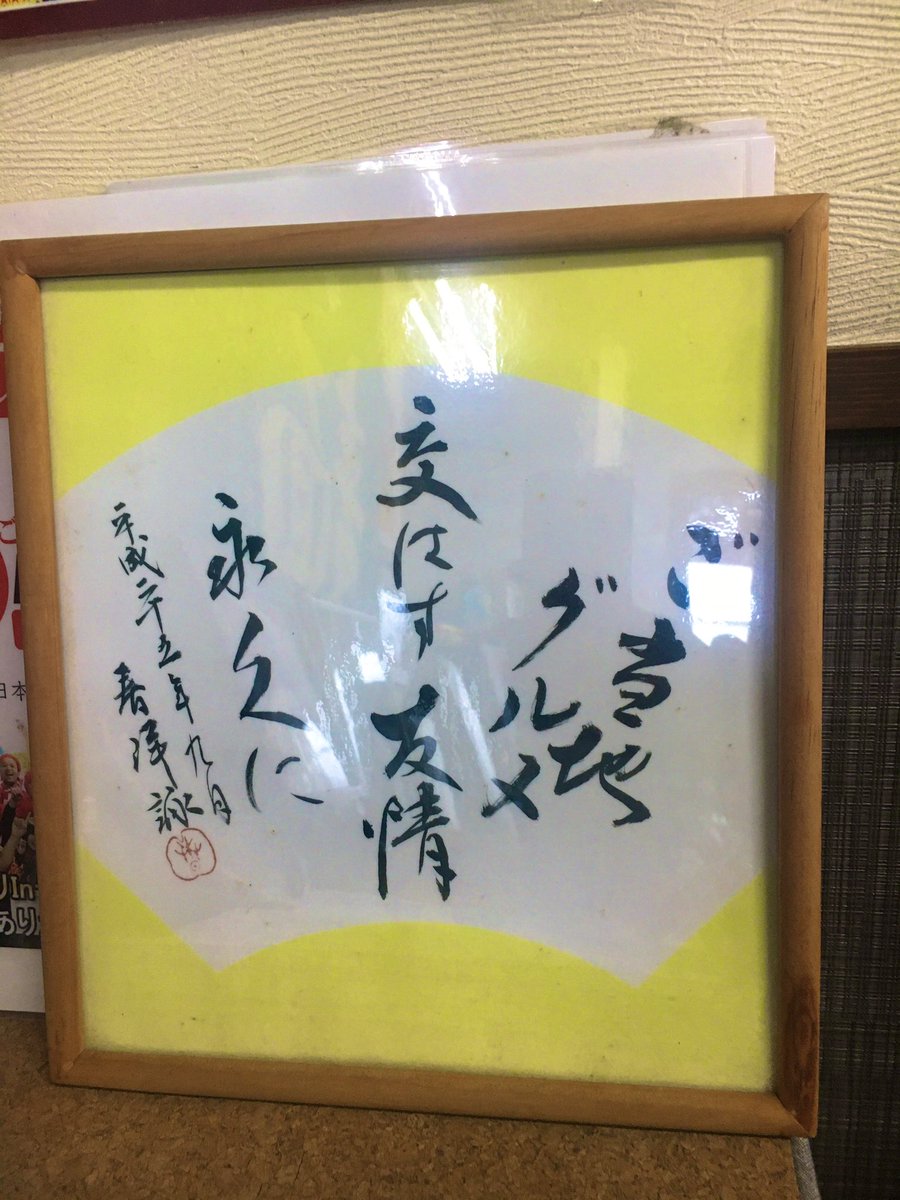 ご当地
グルメ
交はす友情
永久に
平成二十五年九月
詠
日本